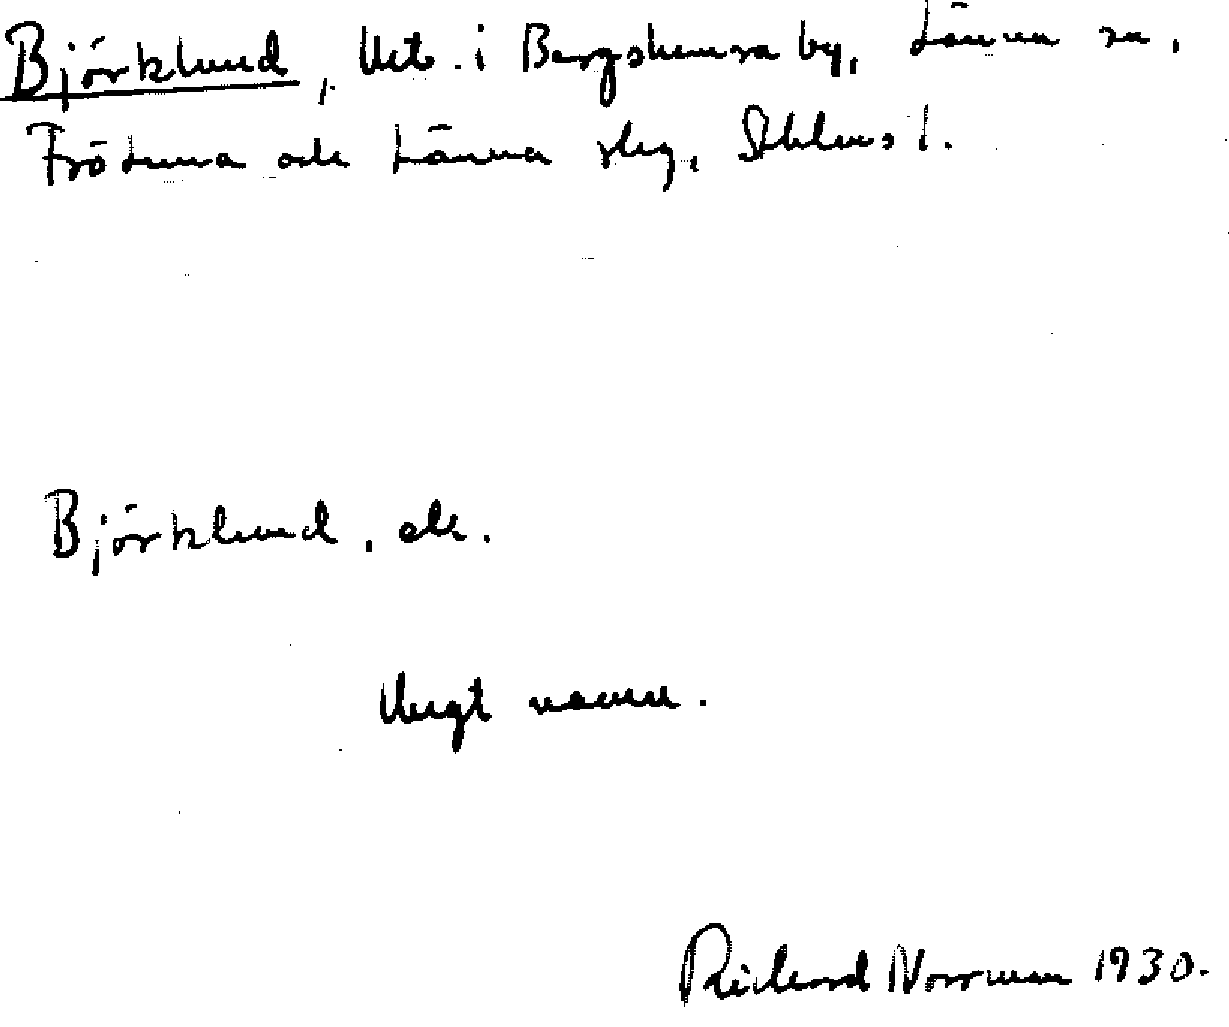 Björklund, lht. i Bergshamra by, Länna sn,
Frötuna och Länna skg, Sthlms l.
Björklund, ek.
Ungt namn.
Rickard Norrman 1930.